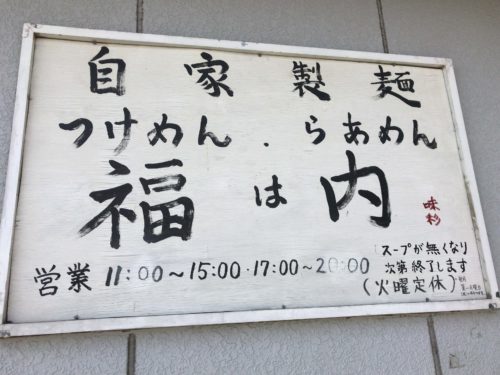 自家製麺
つけめん.らあめん
福は内
味杉
営業 11:00～15:00・17:00～20:00
スープが無くなり
次第終了します
(火曜定休)